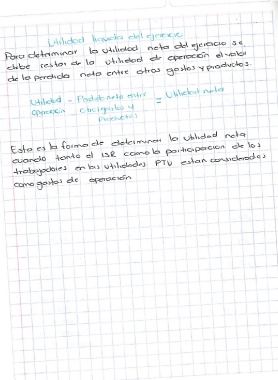 Utilidad liquida del ejercicio
Para determinar la utilidad neta del ejercicio se
debe restar de la utilidad de operación el valor
de la perdida neta entre otros gastos y productos.
Utilidad - Perdida neta entre = Utilidad neta
operación otros gastos y
productos
Esta es la forma de determinar la utilidad neta
cuando tanto el ISR como la participacion de los
trabajadores en las utilidades PTU estan considerados
como gastos de operación